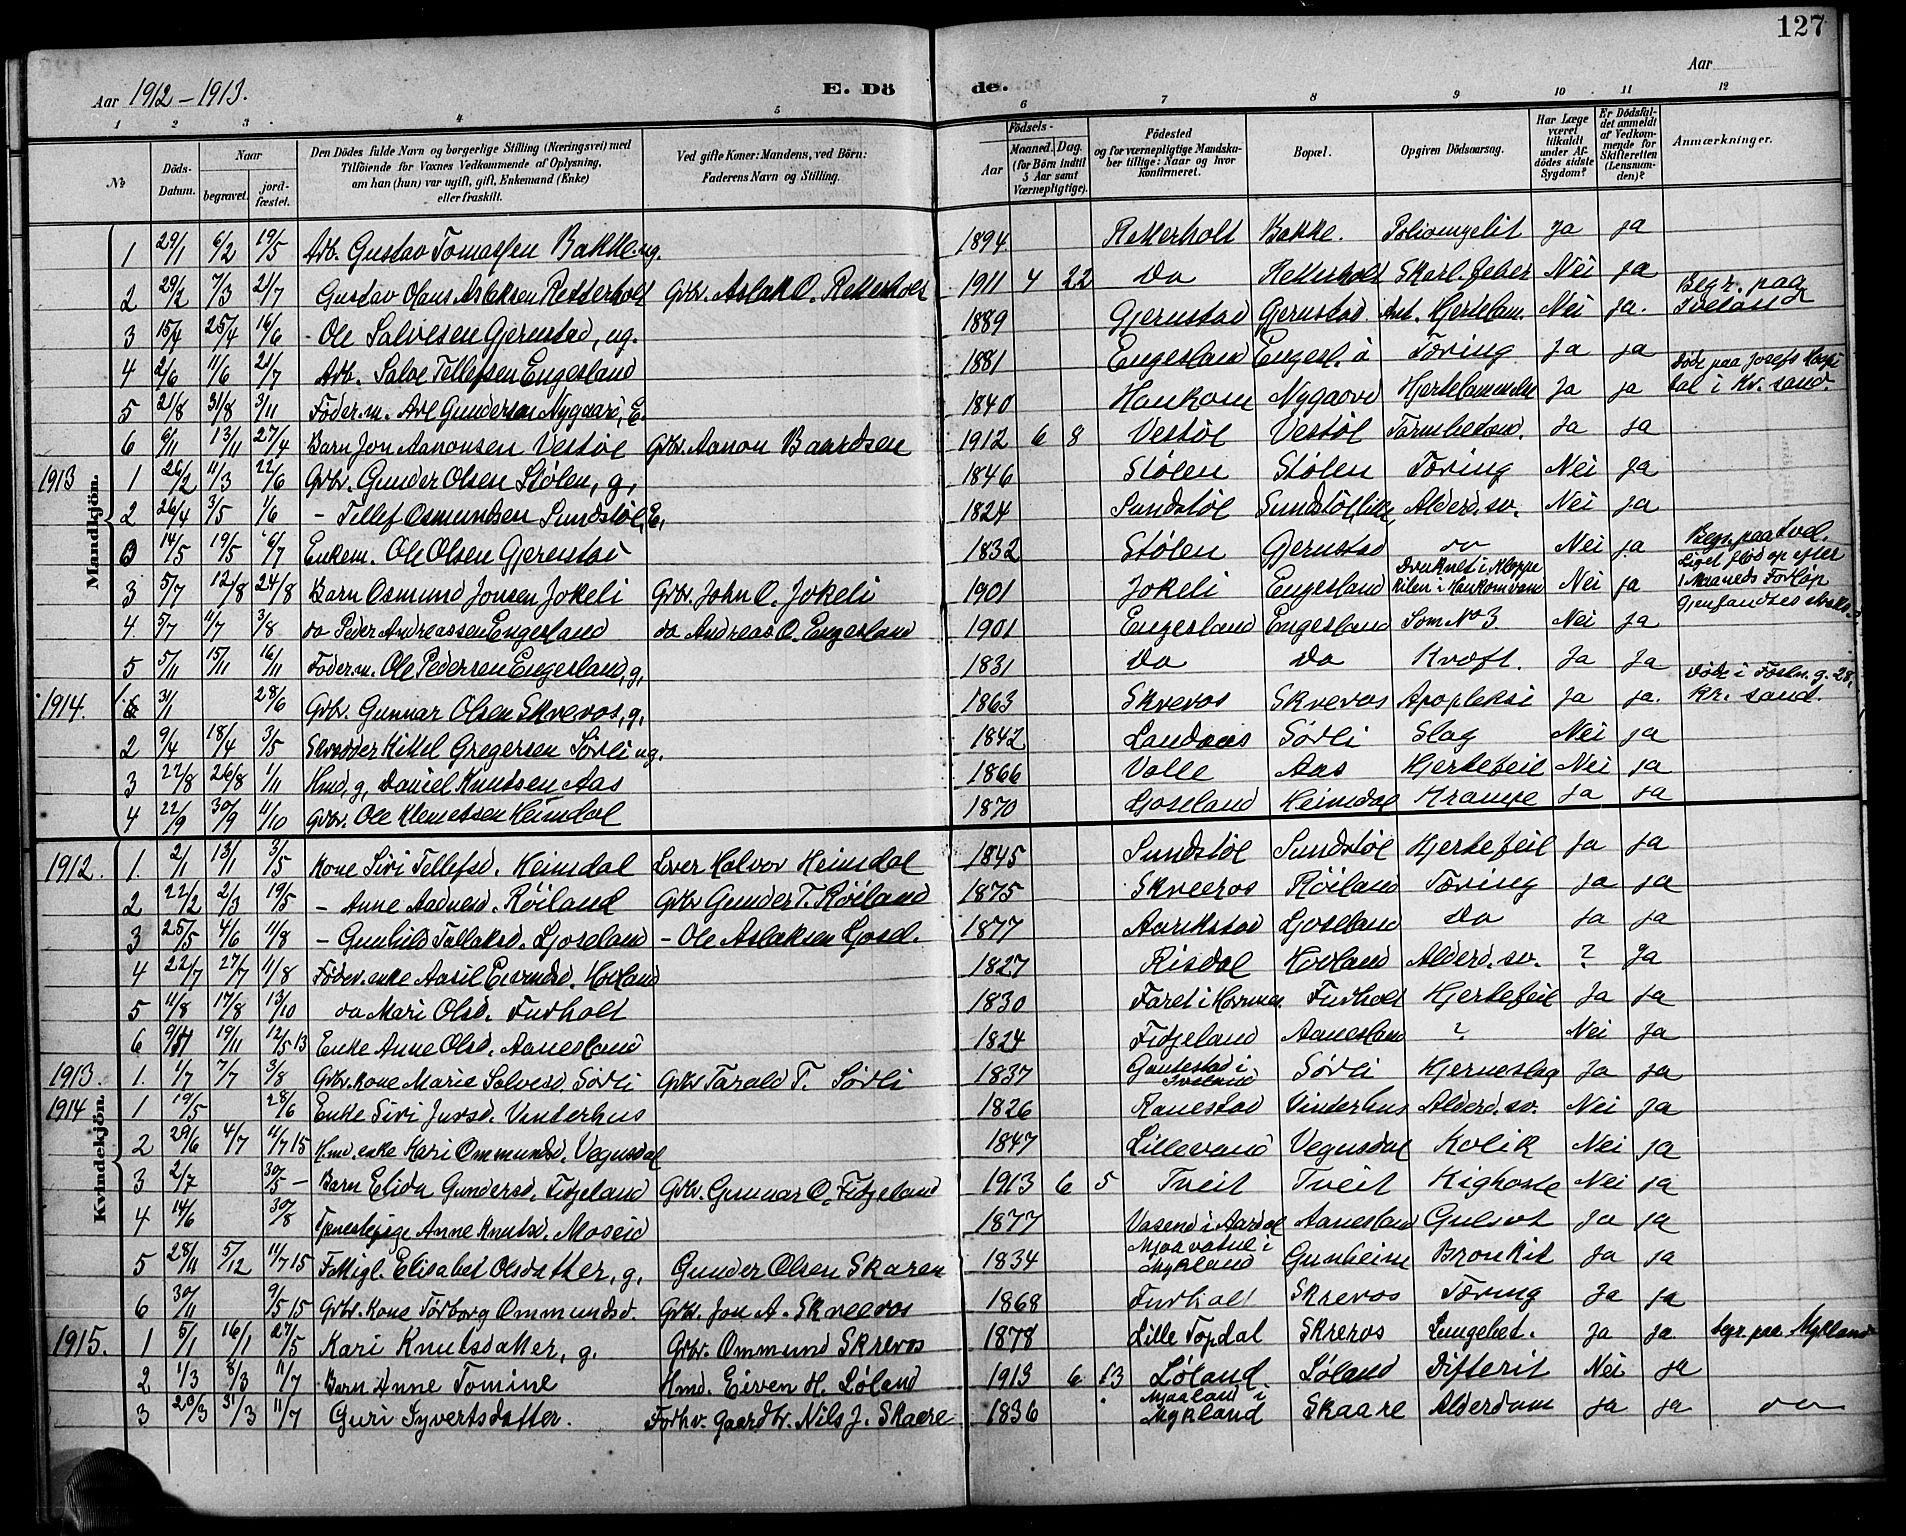 127
Aar 1912-1913. E. Dö de. Aar
1 2 3 4 5 6 7 8 9 10 11 12
No Döds-Datum. Naar begravet. jordfæstet. Den Dödes fulde Navn og borgerlige Stilling (Næringsvei) med Tilföiende for Voxnes Vedkommende af Oplysning, om han (hun) var ugift, gift, Enkemand (Enke) eller fraskilt. Ved gifte Koner: Mandens, ved Börn: Faderens Navn og Stilling. Födsels- Aar Maaned. Dag. (for Börn indtil 5 Aar samt Værnepligtige). Födested og for værnepligtige Mandskaber tillige: Naar og hvor konfirmeret. Bopæl. Opgiven Dödsaarsag. Har Læge været tilkaldt under Afdödes sidste Sygdom? Er Dödsfaldet anmeldt af Vedkommende for Skifteretten (Lensmanden)? Anmærkninger.
Mandkjön.
1 29/1 6/2 19/5 Arb. Gustav Tomassen Bakke ug. 1894 Retterholt Bakke. Poliomyelit Ja ja
2 29/2 7/3 21/7 Gustav Olaus Aslaksen Retterholt Grbr. Aslak O. Retterholt 1911 4 22 Do Retterholt Skarl. feber Nei ja Begr. paa Iveland
3 15/4 25/4 16/6 - Ole Salvesen Gjerustad, ug. 1889 Gjerustad Gjerustad Ant. Hjertelam. Nei ja.
4 2/6 11/6 21/7 Arb. Salve Tellefsen Engesland 1881 Engesland Engesl. Tæring Ja ja Död paa Josefs Hospital i Kr. sand.
5 21/8 31/8 3/11 Föderm. Avl Gundersen Nygaard, E. 1840 Haukom Nygaard Hjertelammelse Ja ja
6 6/11 13/11 27/4 Barn Jon Aanonsen Vestøl Grbr. Aanon Baardsen 1912 6 8 Vestøl Vestøl Ja ja
1913 1 26/2 11/3 22/6 Grbr. Gunder Olsen Stølen, g, 1846 Stølen Stølen Tæring Nei ja
2 26/4 3/5 1/6 - Tellef Osmundsen Sundstøl, E, 1824 Sundstøl Sundstøl Alderd. sv. Nei ja
3 14/5 19/5 6/7 Enkem. Ole Olsen Gjerustad 1832 Stølen Gjerustad do Nei ja Begr. paa Tvd.
3 5/7 12/8 24/8 Barn Osmund Jonsen Jokeli Grbr. John O. Jokeli 1901 Jokeli Engesland Druknet i Kloppekilen i Haukomvand Nei ja Liget flöd op efter 1 Maaneds Forløp
4. 5/7 11/7 3/8 do Peder Andreassen Engesland do Andreas O. Engesland 1901 Engesland Engesland Som No 3 Nei ja Gjenfandtes straks.
5 5/11 15/11 16/11 Föderm. Ole Pedersen Engesland, g, 1831 Do Do Kræft. Ja Ja
1914. 1. 3/1 28/6 Grbr. Gunnar Olsen Skreros, g, 1863 Skreros Skreros Apopleksi Ja ja. Död i Kr. sand.
2 9/4 18/4 3/5 Skrædder Kittel Gregersen Sörli ug. 1842 Landaas Sörli Slag Nei ja
3 22/8 26/8 1/11 Hmd, g, Daniel Knutsen Aas 1866 Valle Aas Hjertefeil Nei ja
4 22/9 30/9 11/10 Grbr. Ole Klemetsen Heimdal 1870 Ljoseland Heimdal Krampe Ja ja
Kvindekjön.
1912. 1. 2/1 13/1 3/5 Kone Siri Tellefsd. Heimdal Lærer Halvor Heimdal 1845 Sundstøl Sundstøl Hjertefeil Ja ja
2 22/2 2/3 19/5 - Anne Aadnesd. Röiland Grbr Gunder T. Röiland 1875 Skreros Röiland Tæring ja ja
3 25/5 4/6 11/8 - Gunhild Tallaksd. Ljoseland - Ole Aslaksen Ljosel. 1877 Aarikstad Ljoseland Do ja ja
4 22/7 27/7 11/8 Föder. enke Aasil Eivindsd. Hovland 1827 Risdal Hovland Alderd. sv. ? Ja
5 11/8 17/8 13/10 do Mari Olsd. Furholt 1830 Faret i Furholt Hjertefeil Ja Ja
6 9/11 19/11 12/5 13 Enke Anne Olsd. Aanesland 1824 Fidjeland Aanesland ? Nei ja
1913. 1. 1/7 7/7 3/8 Grbr. kone Marie Salvesd. Sörli Grbr Tarald T. Sörli 1837 Gautestad i Iveland Sörli Hjerneslag Ja ja
1914 1 19/5 28/6 Enke Siri Jursd. Vinterhus 1826 Ranestad Vinterhus Alderd. sv. Nei ja
2 29/6 4/7 11/7 15 Hmd. enke Kari Ommundsd. Vegusdal 1847 Lillevand Vegusdal Kolik Nei ja
3 2/7 30/5 - Barn Elida Gundersd. Fidjeland Grbr. Gunnar O. Fidjeland 1913 6 5 Tveit Tveit Kighoste Nei ja
4 14/6 30/8 Tjenestepige Anne Knutsd. Moseid 1877 Vasend i Aardal Aanesland Gulsot ja ja
5 28/11 5/12 11/7 15 Fattigl. Elisabet Olsdatter, g, Gunder Olsen Skaren 1834 Mjaavatne i Mykland Gunheim Bronkit Ja ja
6 30/11 9/5 15 Grbr. Kone Torborg Ommundsd. Grbr. Jon A. Skreros 1868 Furholt Skreros Tæring Ja ja
1915. 1 5/1 16/1 27/5 Kari Knutsdatter, g. Grbr. Ommund Skreros 1878 Lille Topdal Skreros Lungebet. Ja ja begr. paa Mykland
2 1/3 8/3 11/7 Barn Anne Tomine Hmd. Eiven H. Løland 1913 6 13 Løland Løland Difterit Nei ja
3 20/3 31/3 11/7 Guri Syvertsdatter. Forhv. gaardbr. Nils J. Skaare 1836 Mjaaland i Mykland Skaare Alderdom ja ja do